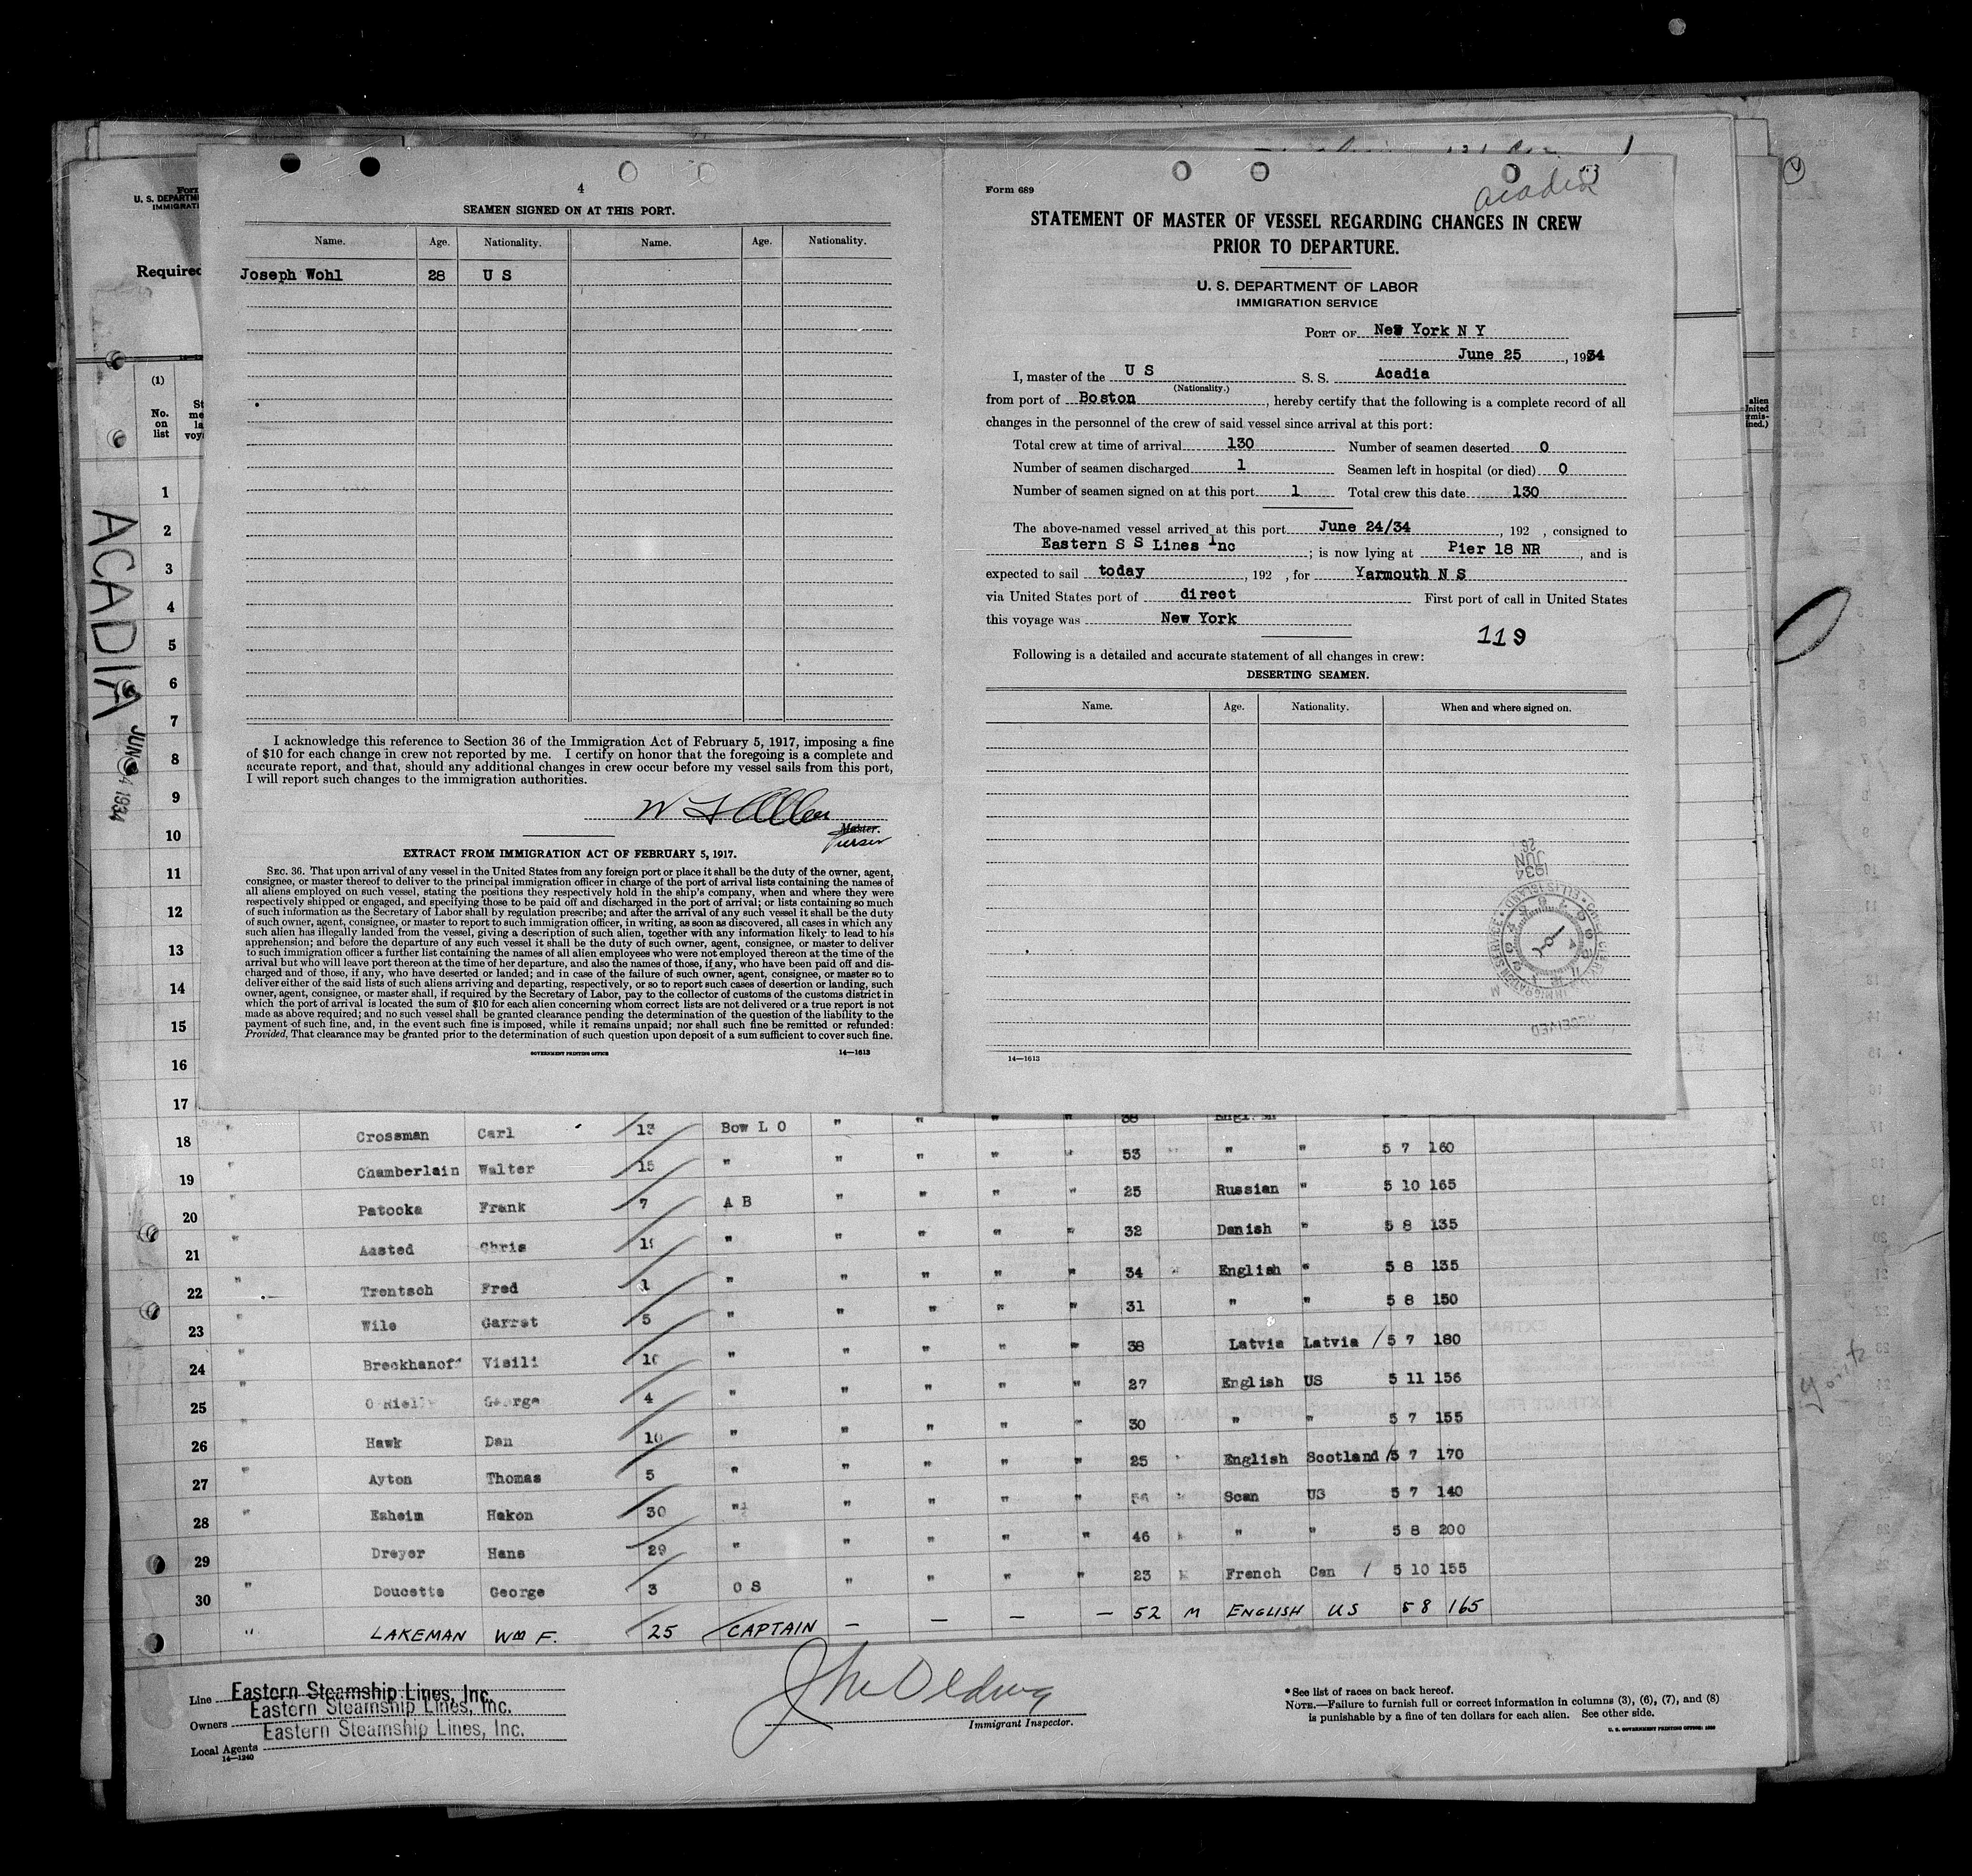 4
SEAMEN SIGNED ON AT THIS PORT.
Name. Age. Nationality. Name. Age. Nationality.
Joseph Wohl 28 U S
I acknowledge this reference to Section 36 of the Immigration Act of February 5, 1917, imposing a fine
of $10 for each change in crew not reported by me. I certify on honor that the foregoing is a complete and
accurate report, and that, should any additional changes in crew occur before my vessel sails from this port,
I will report such changes to the immigration authorities.
Master.
Purser
EXTRACT FROM IMMIGRATION ACT OF FEBRUARY 5, 1917.
SEC. 36. That upon arrival of any vessel in the United States from any foreign port or place it shall be the duty of the owner, agent,
consignee, or master thereof to deliver to the principal immigration officer in charge of the port of arrival lists containing the names of
all aliens employed on such vessel, stating the positions they respectively hold in the ship's company, when and where they were
respectively shipped or engaged, and specifying those to be paid off and discharged in the port of arrival; or lists containing so much
of such information as the Secretary of Labor shall by regulation prescribe; and after the arrival of any such vessel it shall be the duty
of such owner, agent, consignee, or master to report to such immigration officer, in writing, as soon as discovered, all cases in which any
such alien has illegally landed from the vessel, giving a description of such alien, together with any information likely to lead to his
apprehension; and before the departure of any such vessel it shall be the duty of such owner, agent, consignee, or master to deliver
to such immigration officer a further list containing the names of all alien employees who were not employed thereon at the time of the
arrival but who will leave port thereon at the time of her departure, and also the names of those, if any, who have been paid off and dis-
charged and of those, if any, who have deserted or landed; and in case of the failure of such owner, agent, consignee, or master so to
deliver either of the said lists of such aliens arriving and departing, respectively, or so to report such cases of desertion or landing, such
owner, agent, consignee, or master shall, if required by the Secretary of Labor, pay to the collector of customs of the customs district in
which the port of arrival is located the sum of $10 for each alien concerning whom correct lists are not delivered or a true report is not
made as above required; and no such vessel shall be granted clearance pending the determination of the question of the liability to the
payment of such fine, and, in the event such fine is imposed, while it remains unpaid; nor shall such fine be remitted or refunded:
Provided, That clearance may be granted prior to the determination of such question upon deposit of a sum sufficient to cover such fine.
GOVERNMENT PRINTING OFFICE 14—1613
Form 689
Acadia
STATEMENT OF MASTER OF VESSEL REGARDING CHANGES IN CREW
PRIOR TO DEPARTURE.
U. S. DEPARTMENT OF LABOR
IMMIGRATION SERVICE
PORT OF New York N Y
June 25, 1934
I, master of the U S S. S. Acadia
(Nationality.)
from port of Boston, hereby certify that the following is a complete record of all
changes in the personnel of the crew of said vessel since arrival at this port:
Total crew at time of arrival 130 Number of seamen deserted 0
Number of seamen discharged 1 Seamen left in hospital (or died) 0
Number of seamen signed on at this port 1 Total crew this date 130
The above-named vessel arrived at this port June 24/34, 192 , consigned to
Eastern S S Lines Inc; is now lying at Pier 18 NR, and is
expected to sail today, 192 , for Yarmouth N S
via United States port of direct First port of call in United States
this voyage was New York
119
Following is a detailed and accurate statement of all changes in crew:
DESERTING SEAMEN.
Name. Age. Nationality. When and where signed on.
1934
JUN
26
RECEIVED
14—1613
U. S. DEPARTM
IMMIGRATI
Required
(1)
No.
on
list
ACADIA
JUN 24 1934
1
2
3
4
5
6
7
8
9
10
11
12
13
14
15
16
17
18 " Crossman Carl 13 Bow L O " " " " 38
19 " Chamberlain Walter 15 " " " " " 53 " " 5 7 160
20 " Patocka Frank 7 A B " " " " 25 Russian " 5 10 165
21 " Aasted Chris " " " " " 32 Danish " 5 8 135
22 " Trentsch Fred 1 " " " " " 34 English " 5 8 135
23 Wile Garret 5 " " " " " 31 " " 5 8 150
24 " Breckhanoff Visili 10 " " " " " 38 Latvia Latvia / 5 7 180
25 " O Riell George 4 " " " " " 27 English US 5 11 156
26 " Hawk Dan 10 " " " " " 30 " " 5 7 155
27 " Ayton Thomas 5 " " " " " 25 English Scotland / 5 7 170
28 " Esheim Hakon 30 " " " " " 56 Scan US 5 7 140
29 Dreyer Hans 29 " " " " " 46 " " 5 8 200
30 " Doucette George 3 O S " " " " 23 French Can / 5 10 155
" LAKEMAN WM F. 25 CAPTAIN — — — — 52 M ENGLISH US 5 8 165
Line Eastern Steamship Lines, Inc.
Owners Eastern Steamship Lines, Inc.
Local Agents Eastern Steamship Lines, Inc.
14—1240
Immigrant Inspector.
* See list of races on back hereof.
NOTE.—Failure to furnish full or correct information in columns (3), (6), (7), and (8)
is punishable by a fine of ten dollars for each alien. See other side.